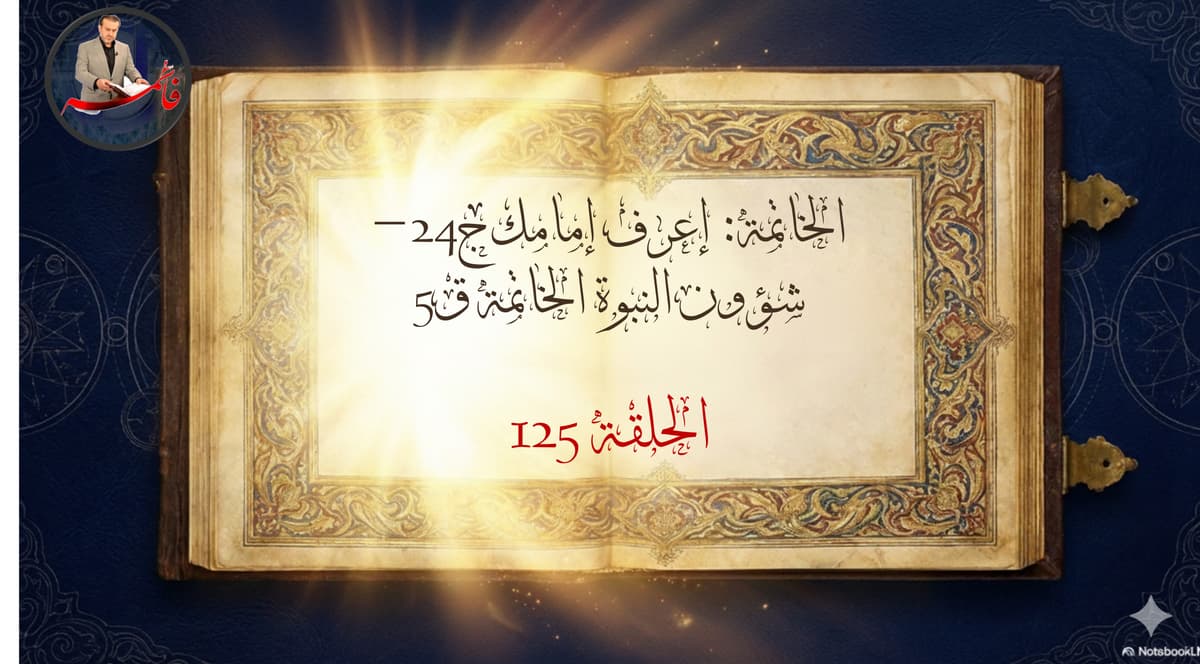 فاطمة
الخاتمة: إعرف إمامك ج24 –
شؤون النبوة الخاتمة ق5
الحلقة 125
NotsbookL